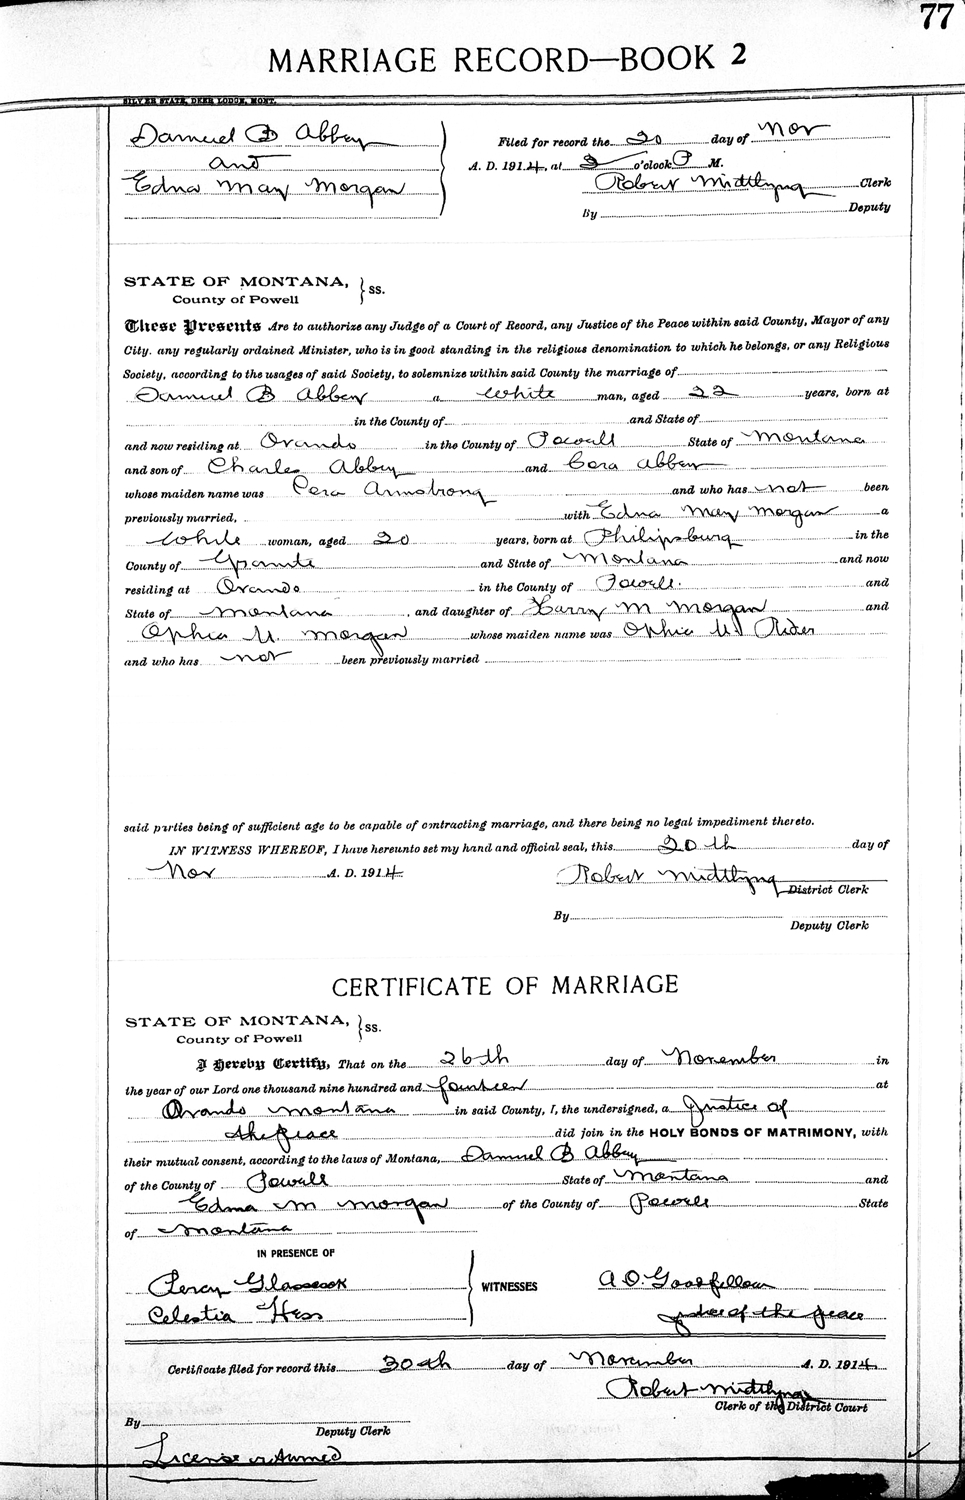 77
MARRIAGE RECORD—BOOK 2
SILVER STATE, DEER LODGE, MONT.
Samuel B Abbey
and
Edna May Morgan
Filed for record the 20 day of Nov
A. D. 1914, at 2 o'clock P M.
Robert Midtlyng Clerk
By Deputy
STATE OF MONTANA, } ss.
County of Powell
These Presents Are to authorize any Judge of a Court of Record, any Justice of the Peace within said County, Mayor of any
City. any regularly ordained Minister, who is in good standing in the religious denomination to which he belongs, or any Religious
Society, according to the usages of said Society, to solemnize within said County the marriage of
Samuel B Abbey a White man, aged 22 years, born at
in the County of and State of
and now residing at Ovando in the County of Powell State of Montana
and son of Charles Abbey and Cora Abbey
whose maiden name was Cora Armstrong and who has not been
previously married, with Edna May Morgan a
White woman, aged 20 years, born at Philipsburg in the
County of Granite and State of Montana and now
residing at Ovando in the County of Powell. and
State of Montana, and daughter of Harry M Morgan and
Ophia U. Morgan whose maiden name was Ophia U. Rider
and who has not been previously married
said parties being of sufficient age to be capable of contracting marriage, and there being no legal impediment thereto.
IN WITNESS WHEREOF, I have hereunto set my hand and official seal, this 20th day of
Nov A. D. 1914 Robert Midtlyng
District Clerk
By
Deputy Clerk
CERTIFICATE OF MARRIAGE
STATE OF MONTANA, } ss.
County of Powell
I Hereby Certify, That on the 26th day of November in
the year of our Lord one thousand nine hundred and fourteen at
Ovando Montana in said County, I, the undersigned, a Justice of
the peace did join in the HOLY BONDS OF MATRIMONY, with
their mutual consent, according to the laws of Montana, Samuel B Abbey
of the County of Powell State of Montana and
Edna M Morgan of the County of Powell State
of Montana
IN PRESENCE OF
Percy Glasscock
Celestia Hess
WITNESSES
A.O. Goodfellow
justice of the peace
Certificate filed for record this 30th day of November A. D. 1914
Robert Midtlyng
Clerk of the District Court
By
Deputy Clerk
License returned